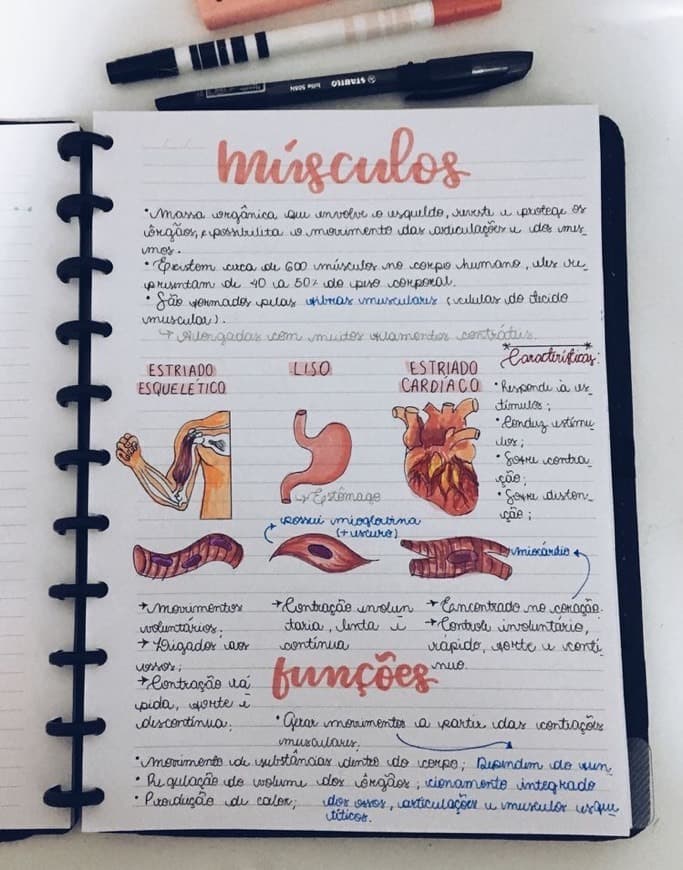 STABILO bille 508N
músculos
• Massa orgânica que envolve o esqueleto, reveste e protege os
órgãos, e possibilita o movimento das articulações e dos mes-
mos.
• Existem cerca de 600 músculos no corpo humano, eles re-
presentam de 40 a 50% do peso corporal.
• São formados pelas fibras musculares (células do tecido
muscular).
↳ Alongadas com muitos filamentos contráteis.
*Características:
• Responde à es-
tímulos;
• Conduz estímu-
los;
• Sofre contra-
ção;
• Sofre disten-
ção;
ESTRIADO
ESQUELÉTICO
LISO
ESTRIADO
CARDÍACO
→ Estômago
possui mioglobina
(+ escuro)
miocárdio
→ Movimentos
voluntários;
→ Ligados aos
ossos;
→ Contração rá-
pida, forte e
descontínua.
→ Contração involun
taria, lenta e
contínua
→ Encontrado no coração.
→ Controle involuntário,
rápido, forte e contí-
nuo.
funções
• Gerar movimentos a partir das contrações
musculares;
• Movimento de substâncias dentro do corpo;
• Regulação do volume dos órgãos;
• Produção de calor;
Dependem do fun-
cionamento integrado
dos ossos, articulações e musculos esque
léticos.